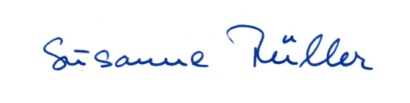 Susanne Müller